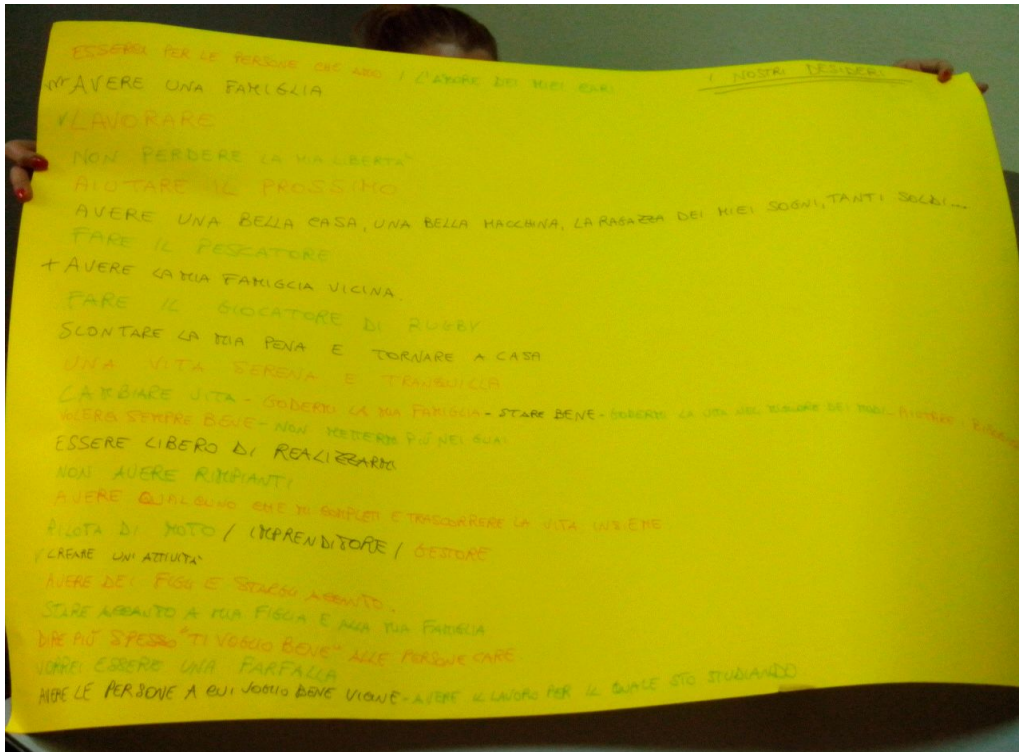 I NOSTRI DESIDERI
ESSERCI PER LE PERSONE CHE AMO / L'AMORE DEI MIEI CARI
AVERE UNA FAMIGLIA
LAVORARE
NON PERDERE LA MIA LIBERTA'
AIUTARE IL PROSSIMO
AVERE UNA BELLA CASA, UNA BELLA MACCHINA, LA RAGAZZA DEI MIEI SOGNI, TANTI SOLDI...
FARE IL PESCATORE
+ AVERE LA MIA FAMIGLIA VICINA.
FARE IL GIOCATORE DI RUGBY
SCONTARE LA MIA PENA E TORNARE A CASA
UNA VITA SERENA E TRANQUILLA
CAMBIARE VITA - GODERMI LA MIA FAMIGLIA - STARE BENE - GODERMI LA VITA NEL MIGLIORE DEI MODI - AIUTARE I
SEMPRE BENE - NON METTERMI PIÙ NEI GUAI
ESSERE LIBERO DI REALIZZARMI
NON AVERE RIMPIANTI
AVERE QUALCUNO CHE MI COMPLETI E TRASCORRERE LA VITA INSIEME
PILOTA DI MOTO / IMPRENDITORE / GESTORE
CREARE UN'ATTIVITA'
AVERE DEI FIGLI E STARGLI ACCANTO.
STARE ACCANTO A MIA FIGLIA E ALLA MIA FAMIGLIA
DIRE PIÙ SPESSO "TI VOGLIO BENE" ALLE PERSONE CARE
VORREI ESSERE UNA FARFALLA
AVERE LE PERSONE A CUI VOGLIO BENE VICINE - AVERE IL LAVORO PER IL QUALE STO STUDIANDO